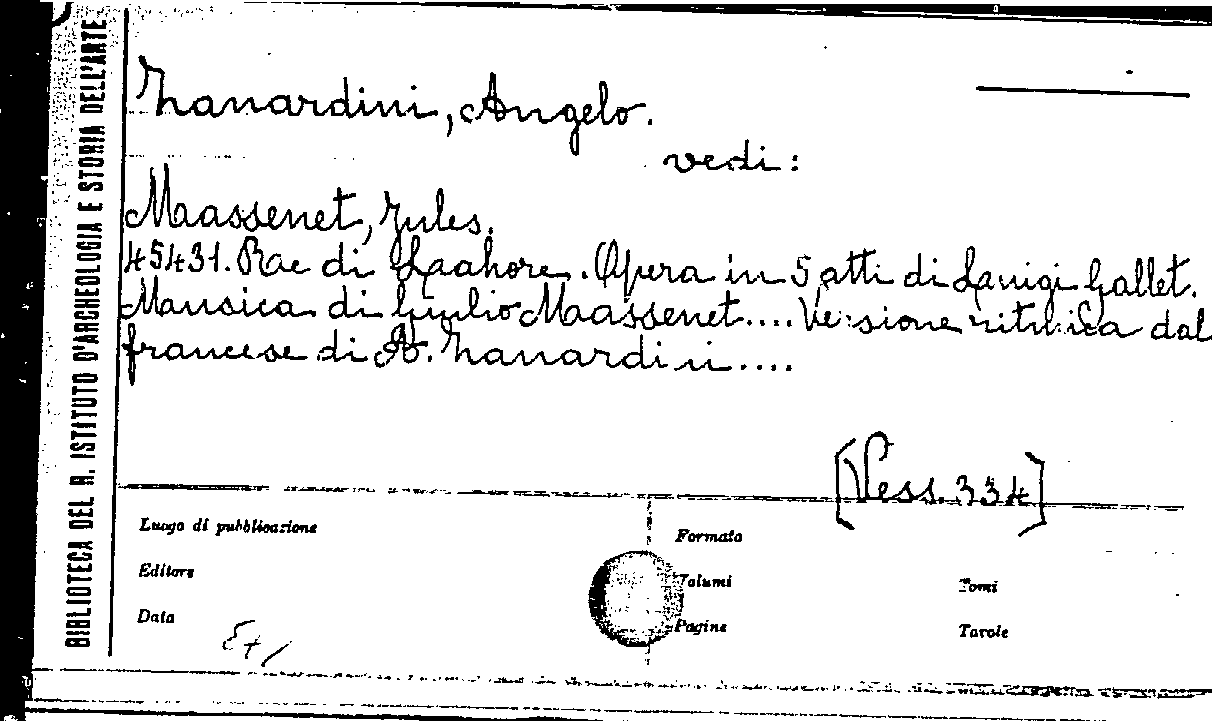 BIBLIOTECA DEL R. ISTITUTO D'ARCHEOLOGIA E STORIA DELL'ARTE
Zanardini, Angelo.
vedi:
Massenet, Jules.
45431. Re di Lahore. Opera in 5 atti di Luigi Gallet.
Musica di Giulio Massenet.... Versione ritmica dal
francese di A. Zanardini....
[Vess. 334]
Luogo di pubblicazione
Formato
Editore
Volumi
Tomi
Data
Pagine
Tavole